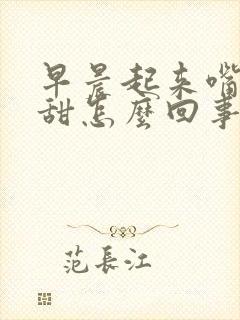 早晨起来嘴
甜怎麽回事
范長江